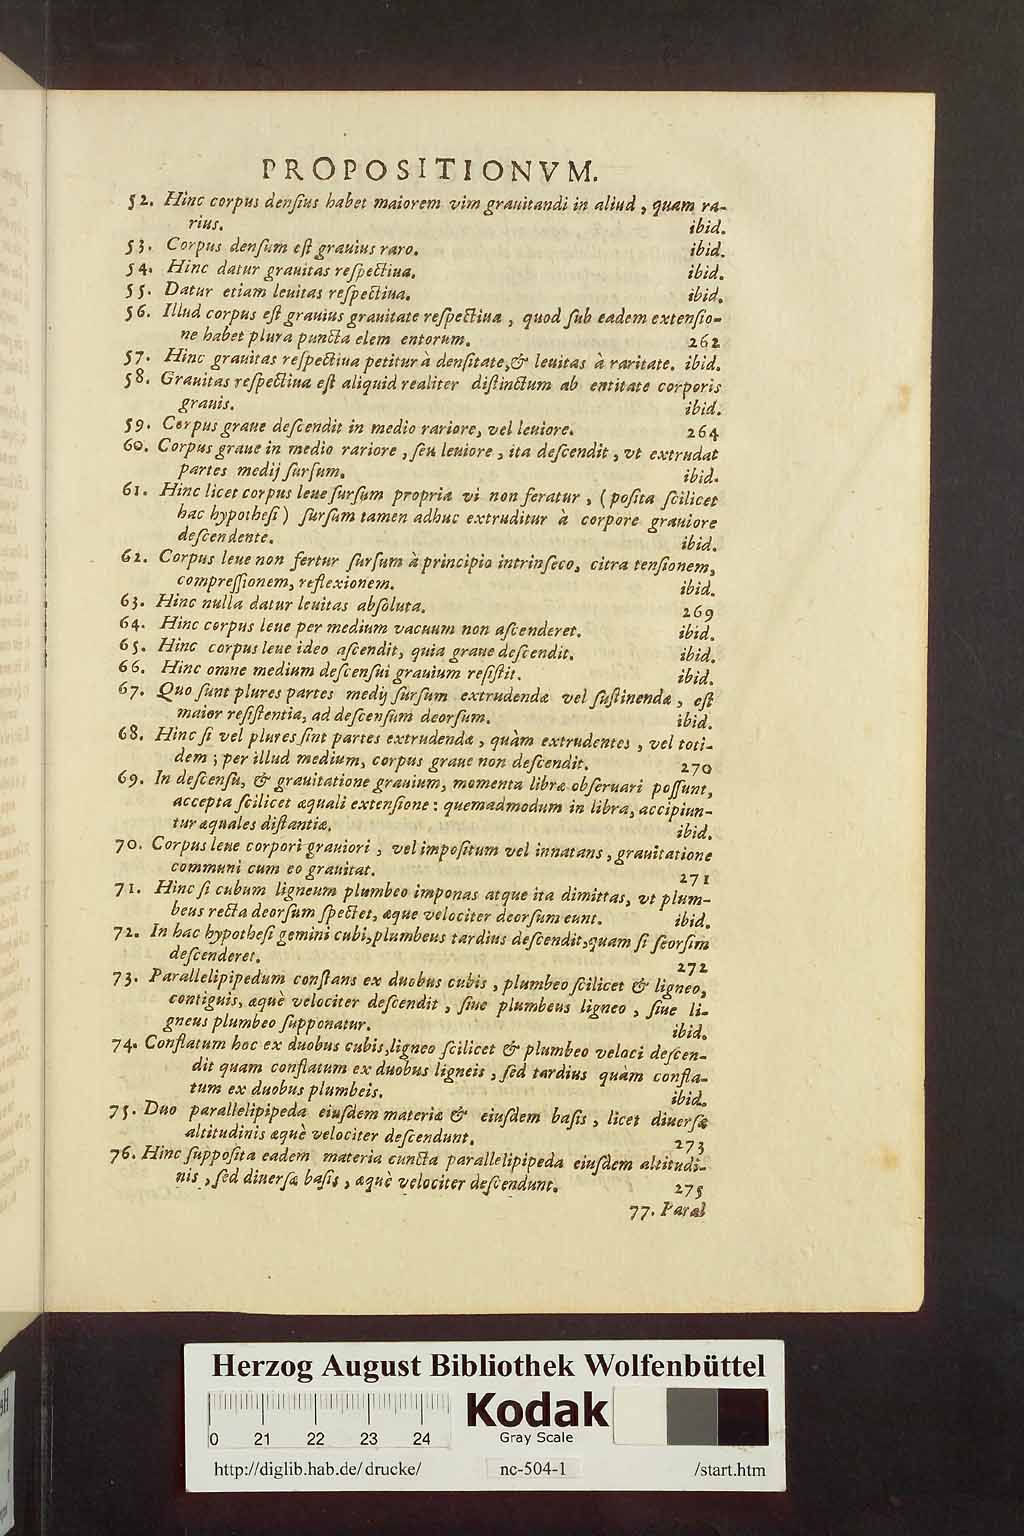 PROPOSITIONVM.
52. Hinc corpus denſius habet maiorem vim grauitandi in aliud, quam ra-
rius. ibid.
53. Corpus denſum eſt grauius raro. ibid.
54. Hinc datur grauitas reſpectiua. ibid.
55. Datur etiam leuitas reſpectiua. ibid.
56. Illud corpus eſt grauius grauitate reſpectiua, quod ſub eadem extenſio-
ne habet plura puncta elem entorum. 262
57. Hinc grauitas reſpectiua petitur à denſitate, & leuitas à raritate. ibid.
58. Grauitas reſpectiua eſt aliquid realiter diſtinctum ab entitate corporis
grauis. ibid.
59. Corpus graue deſcendit in medio rariore, vel leuiore. 264
60. Corpus graue in medio rariore, ſeu leuiore, ita deſcendit, vt extrudat
partes medij ſurſum. ibid.
61. Hinc licet corpus leue ſurſum propria vi non feratur, (poſita ſcilicet
hac hypotheſi) ſurſum tamen adhuc extruditur à corpore grauiore
deſcendente. ibid.
62. Corpus leue non fertur ſurſum à principio intrinſeco, citra tenſionem,
compreſſionem, reflexionem. ibid.
63. Hinc nulla datur leuitas abſoluta. 269
64. Hinc corpus leue per medium vacuum non aſcenderet. ibid.
65. Hinc corpus leue ideo aſcendit, quia graue deſcendit. ibid.
66. Hinc omne medium deſcenſui grauium reſiſtit. ibid.
67. Quo ſunt plures partes medij ſurſum extrudendæ vel ſuſtinendæ, eſt
maior reſiſtentia, ad deſcenſum deorſum. ibid.
68. Hinc ſi vel plures ſint partes extrudendæ, quàm extrudentes, vel toti-
dem; per illud medium, corpus graue non deſcendit. 270
69. In deſcenſu, & grauitatione grauium, momenta libræ obſeruari poſſunt,
accepta ſcilicet æquali extenſione: quemadmodum in libra, accipiun-
tur æquales diſtantiæ. ibid.
70. Corpus leue corpori grauiori, vel impoſitum vel innatans, grauitatione
communi cum eo grauitat. 271
71. Hinc ſi cubum ligneum plumbeo imponas atque ita dimittas, vt plum-
beus recta deorſum ſpectet, æque velociter deorſum eunt. ibid.
72. In hac hypotheſi gemini cubi, plumbeus tardius deſcendit, quam ſi ſeorſim
deſcenderet. 272
73. Parallelipipedum conſtans ex duobus cubis, plumbeo ſcilicet & ligneo,
contiguis, æquè velociter deſcendit, ſiue plumbeus ligneo, ſiue li-
gneus plumbeo ſupponatur. ibid.
74. Conflatum hoc ex duobus cubis, ligneo ſcilicet & plumbeo veloci deſcen-
dit quam conflatum ex duobus ligneis, ſed tardius quàm confla-
tum ex duobus plumbeis. ibid.
75. Duo parallelipipeda eiuſdem materiæ & eiuſdem baſis, licet diuerſæ
altitudinis æquè velociter deſcendunt. 273
76. Hinc ſuppoſita eadem materia cuncta parallelipipeda eiuſdem altitudi-
nis, ſed diuerſæ baſis, æquè velociter deſcendunt. 275
77. Paral
Herzog August Bibliothek Wolfenbüttel
0 21 22 23 24
Kodak
Gray Scale
http://diglib.hab.de/drucke/ nc-504-1 /start.htm